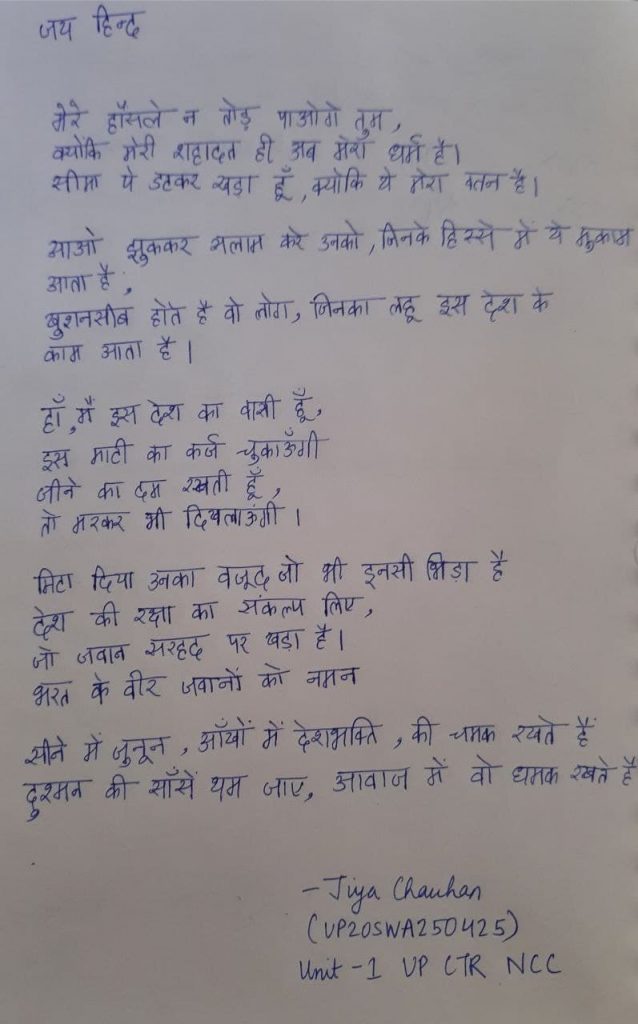 जय हिन्द
मेरे हौंसले न तोड़ पाओगे तुम,
क्योंकि मेरी शहादत ही अब मेरा धर्म है।
सीमा पे डटकर खड़ा हूँ, क्योंकि ये मेरा वतन है।
आओ झुककर सलाम करे उनको, जिनके हिस्से में ये मुकाम
आता है,
खुशनसीब होते है वो लोग, जिनका लहू इस देश के
काम आता है।
हाँ, मै इस देश का वासी हूँ,
इस माटी का कर्ज चुकाऊँगी
जीने का दम रखती हूँ,
तो मरकर भी दिखलाऊंगी।
मिटा दिया उनका वजूद जो भी इनसी भिड़ा है
देश की रक्षा का संकल्प लिए,
जो जवान सरहद पर खड़ा है।
भरत के वीर जवानों को नमन
सीने में जुनून, आँखों में देशभक्ति, की चमक रखते हैं
दुश्मन की साँसें थम जाए, आवाज में वो धमक रखते है
- Jiya Chauhan
(UP20SWA250425)
Unit - 1 UP CTR NCC